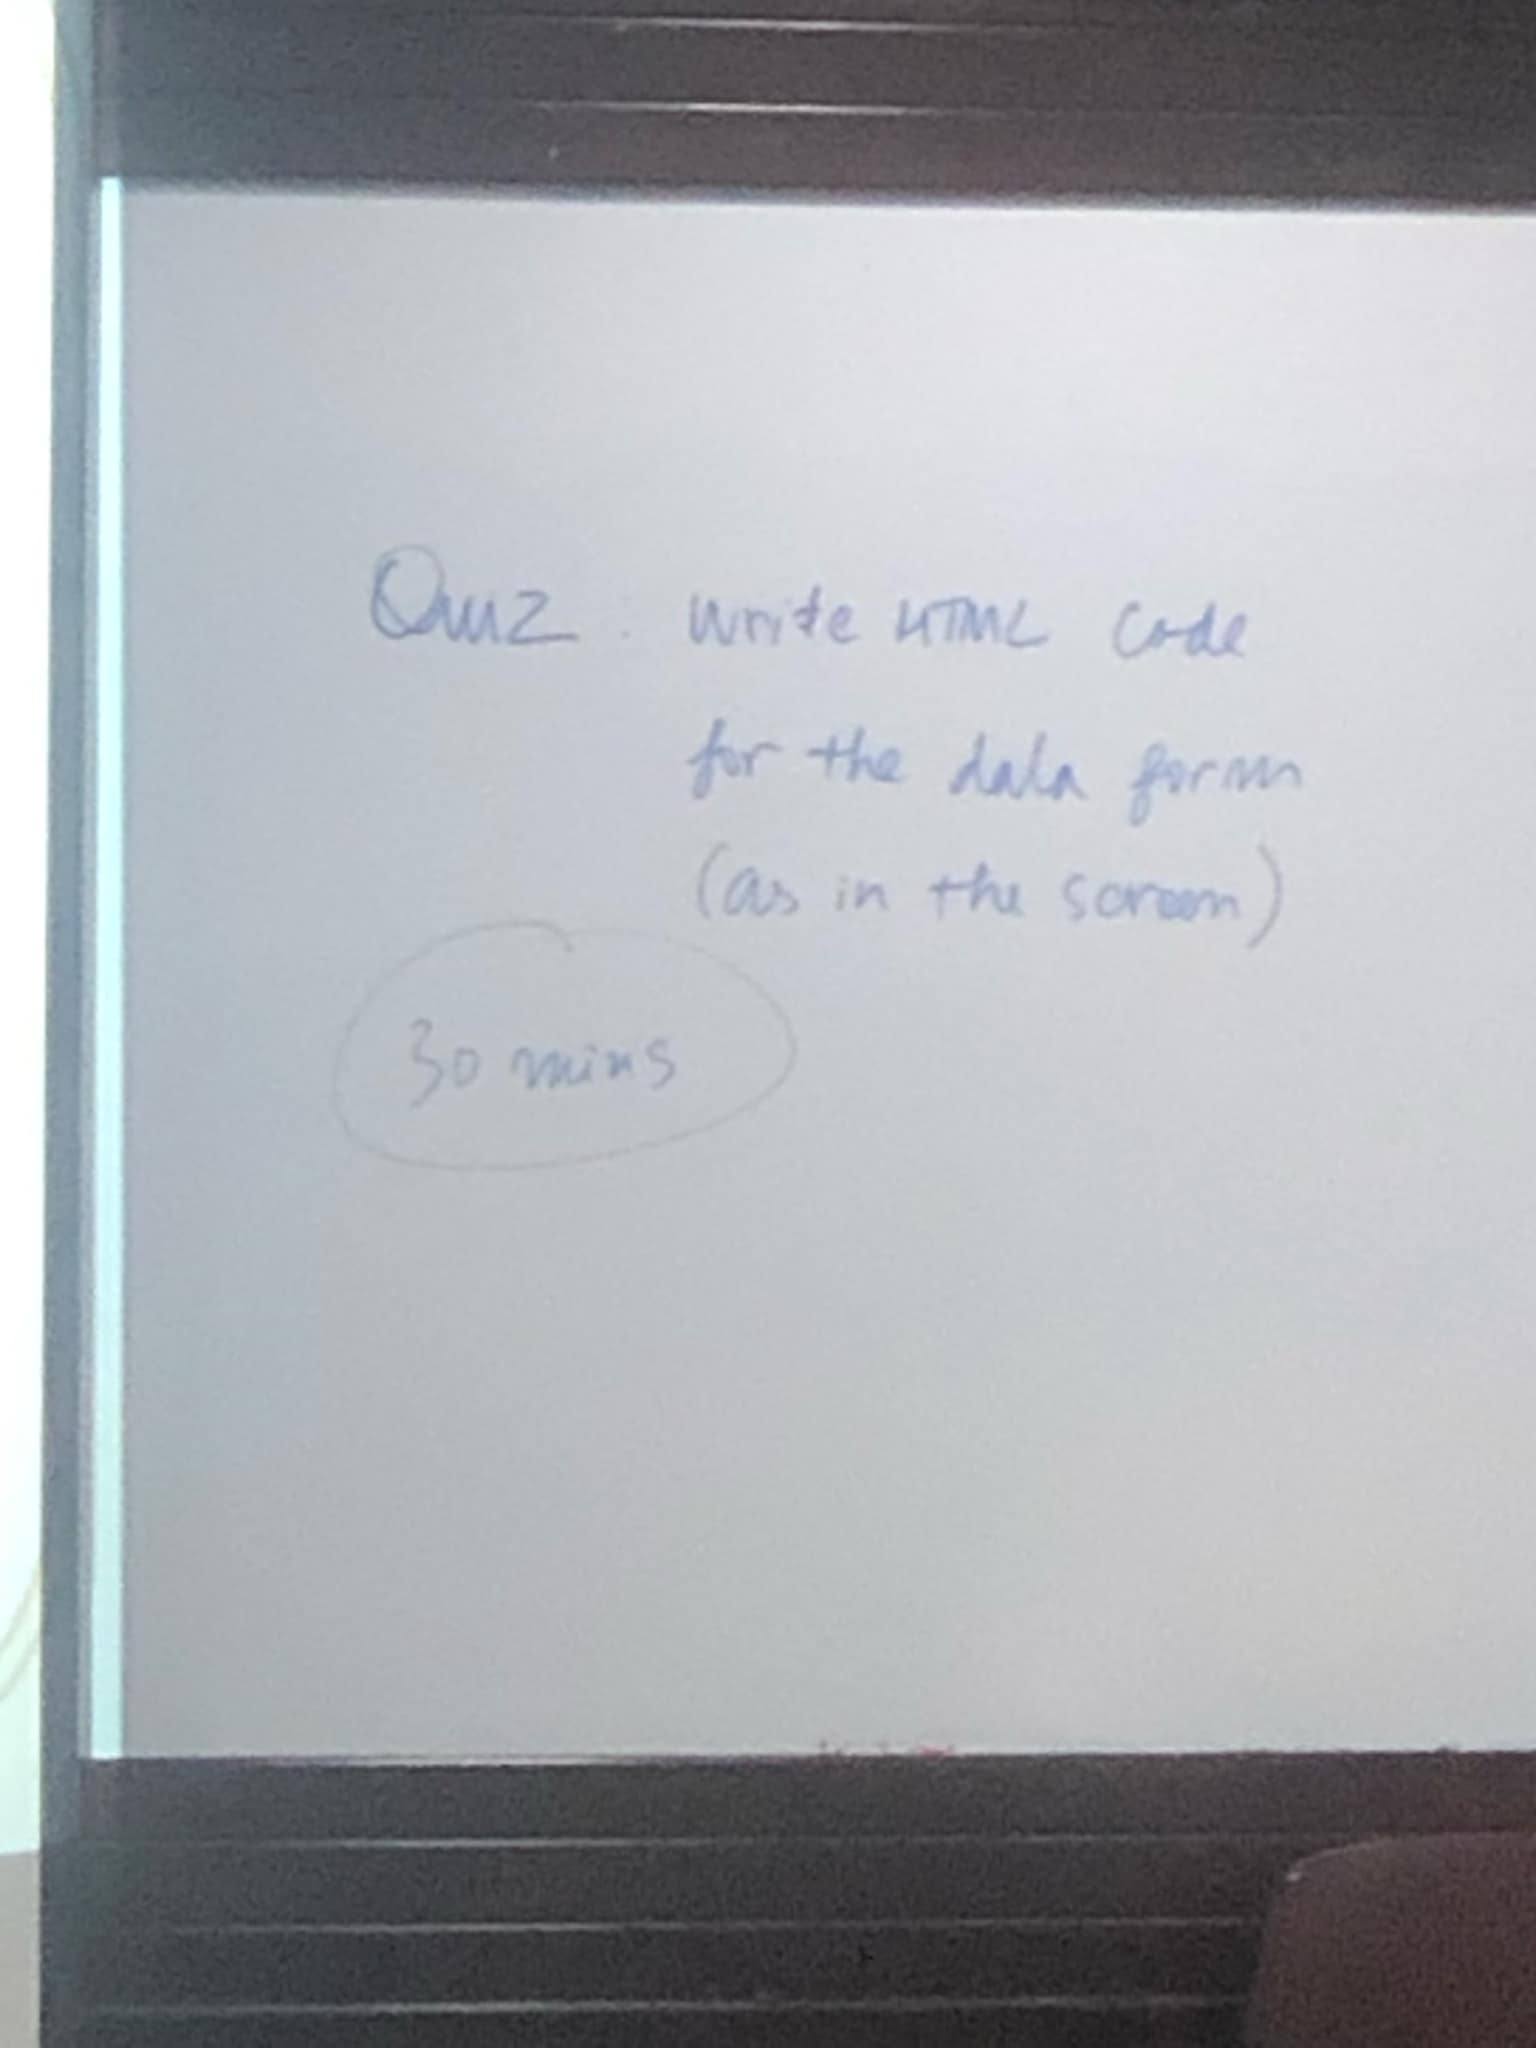 Quiz : Write HTML Code
for the data form
(as in the screen)
30 mins